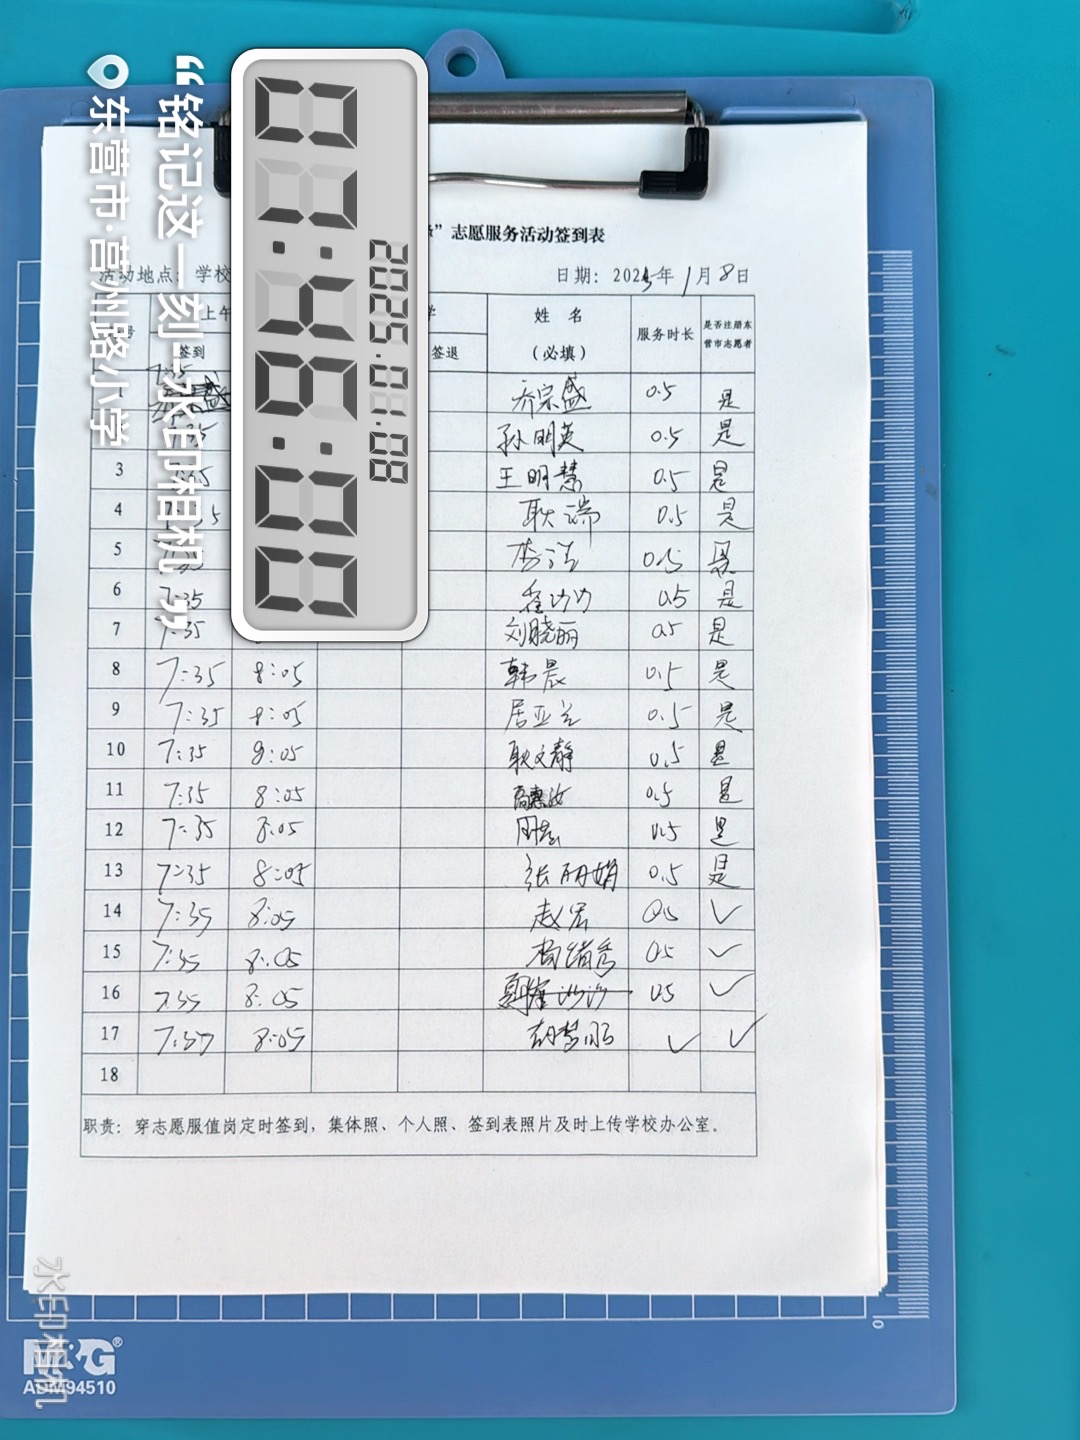 “铭记这一刻-水印相机”
东营市·营州路小学
07:48:00
2025.01.08
”志愿服务活动签到表
活动地点：学校
日期：2025年1月8日
号 上午 学 姓 名 服务时长 是否注册东营市志愿者
签到 签退 （必填）
1 7:35 乔宗盛 0.5 是
孙明英 0.5 是
3 王明慧 0.5 是
4 耿端 0.5 是
5 李洁 0.5 是
6 7:35 0.5 是
7 7:35 刘晓丽 0.5 是
8 7:35 8:05 韩晨 0.5 是
9 7:35 8:05 居亚兰 0.5 是
10 7:35 8:05 耿文静 0.5 是
11 7:35 8:05 高惠汝 0.5 是
12 7:35 8:05 0.5 是
13 7:35 8:05 张丽娟 0.5 是
14 7:35 8:05 赵宏 0.5 ✓
15 7:35 8:05 0.5 ✓
16 7:35 8:05 0.5 ✓
17 7:35 8:05 ✓ ✓
18
职责：穿志愿服值岗定时签到，集体照、个人照、签到表照片及时上传学校办公室。
水印相机
M&G®
ADM94510
10